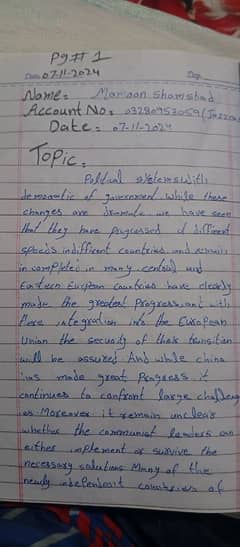 Pg # 1
Date 07-11-2024 Day
Name: Mamoon Shamshad
Account No: 03280953059 (Jazzca
Date: 07-11-2024
Topic:
Political systems with
democratic of government while these
changes are dramatic we have seen
that they have progressed at different
speeds in different countries and remain
incompleted in many central and
Eastern European Countries have clearly
made the greatest Progress and with
there integration into the European
Union the security of their transition
will be assured And while china
has made great Progress it
continues to confront large challeng
es Moreover it remain unclear
whether the communist leaders can
either implement or survive the
necessary solutions Many of the
newly independent countries of